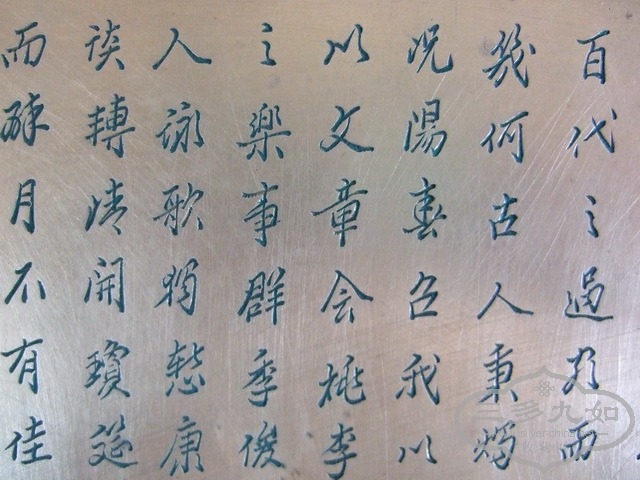 百代之過客而
幾何古人秉燭
況陽春召我以
以文章会桃李
之樂事群季俊
人詠歌獨慚康
談轉清開瓊筵
而醉月不有佳
三多九如